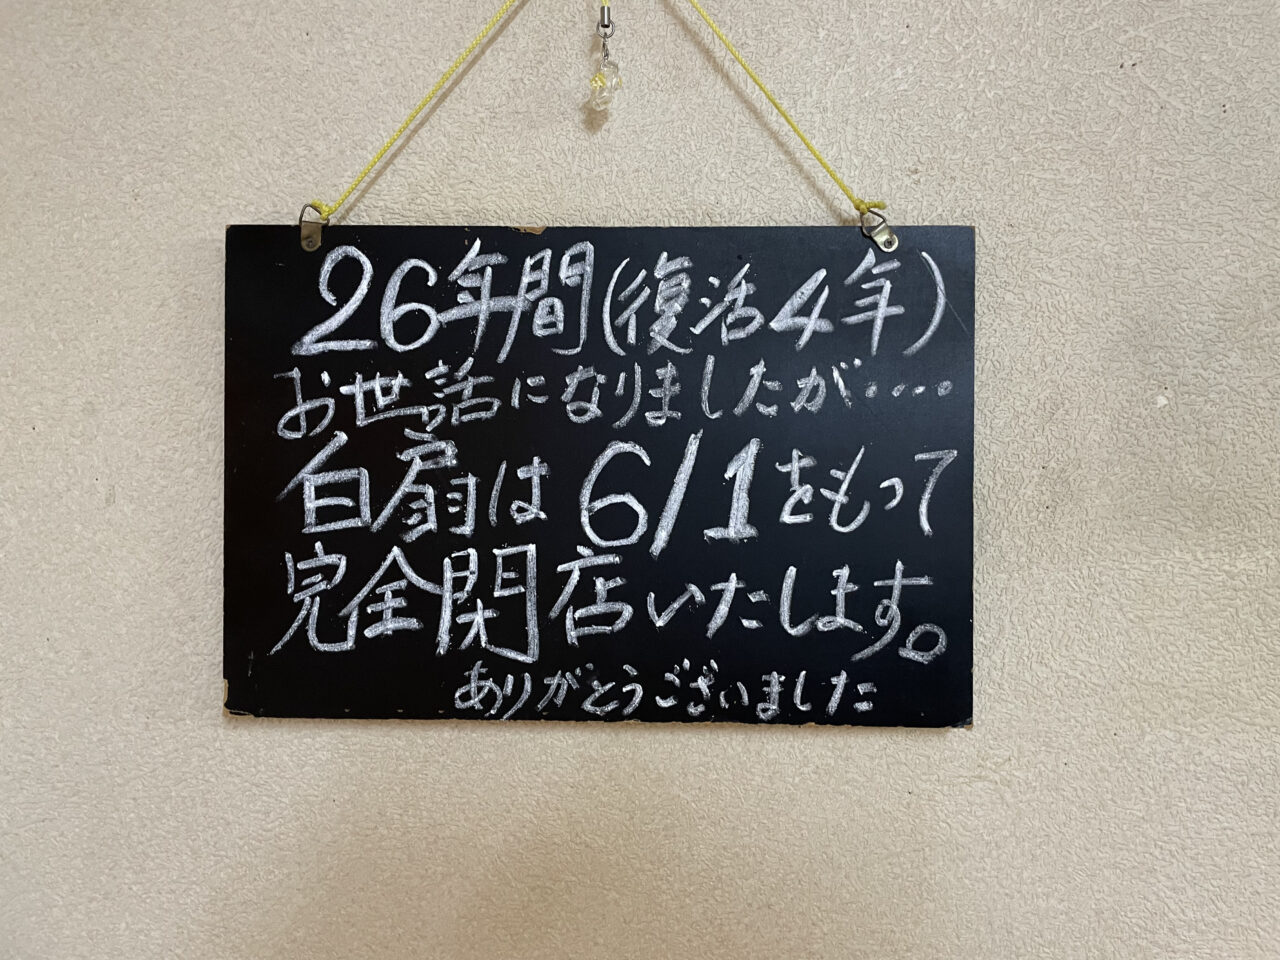 26年間(復活4年)
お世話になりましたが・・・・
白扇は6/1をもって
完全閉店いたします。
ありがとうございました